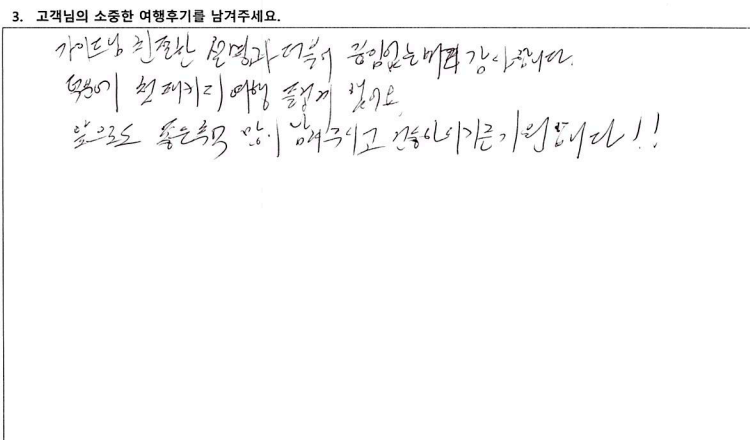 3. 고객님의 소중한 여행후기를 남겨주세요.
가이드님 친절한 설명과 더불어 끊임없는 배려 감사합니다.
덕분에 첫 패키지 여행 즐겁게 했어요
앞으로도 좋은추억 많이 남겨주시고 건승하시기를 기원합니다!!